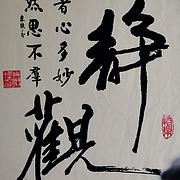 靜觀
者心多妙
然思不羣